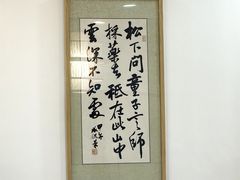 松下問童子言師
採藥去祗在此山中
雲深不知處
甲午